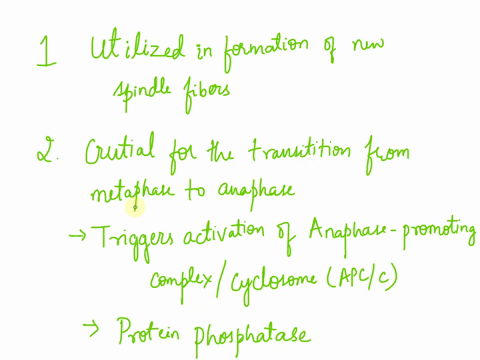 1 Utilized in formation of new
spindle fibers
2. Crutial for the transtition from
metaphase to anaphase
→ Triggers activation of Anaphase-promoting
complex/cyclosome (APC/C)
→ Protein phosphatase